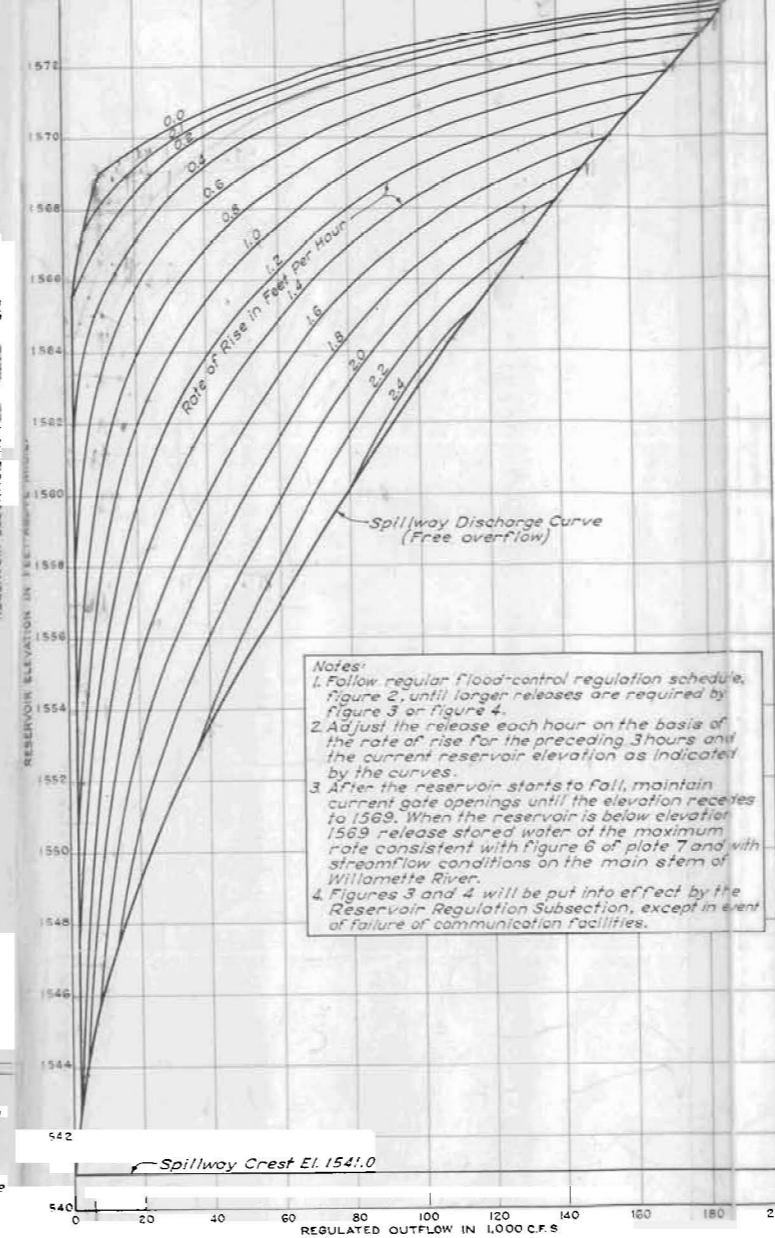 1572
1570
1568
1566
1564
1562
1560
1558
1556
1554
1552
1550
1548
1546
1544
542
540
0.0
0.2
0.4
0.6
0.8
1.0
1.2
1.4
1.6
1.8
2.0
2.2
2.4
Rate of Rise in Feet per Hour
Spillway Discharge Curve
(Free overflow)
Notes:
1. Follow regular flood-control regulation schedule,
figure 2, until larger releases are required by
figure 3 or figure 4.
2. Adjust the release each hour on the basis of
the rate of rise for the preceding 3 hours and
the current reservoir elevation as indicated
by the curves.
3. After the reservoir starts to fall, maintain
current gate openings until the elevation recedes
to 1569. When the reservoir is below elevation
1569 release stored water at the maximum
rate consistent with figure 6 of plate 7 and with
streamflow conditions on the main stem of
Willamette River.
4. Figures 3 and 4 will be put into effect by the
Reservoir Regulation Subsection, except in event
of failure of communication facilities.
Spillway Crest El. 1541.0
0 20 40 60 80 100 120 140 160 180 2
REGULATED OUTFLOW IN 1,000 C.F.S
RESERVOIR ELEVATION IN FEET ABOVE